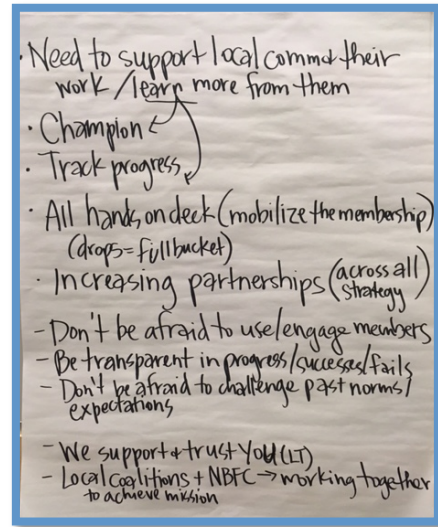 · Need to support local commd their
work/learn more from them
· Champion
· Track progress
· All hands on deck (mobilize the membership)
(drops = full bucket)
· Increasing partnerships (across all
strategy)
- Don't be afraid to use/engage members
- Be transparent in progress/successes/fails
- Don't be afraid to challenge past norms/
expectations
- We support + trust You (LT)
- Local Coalitions + NBFC → working together
to achieve mission